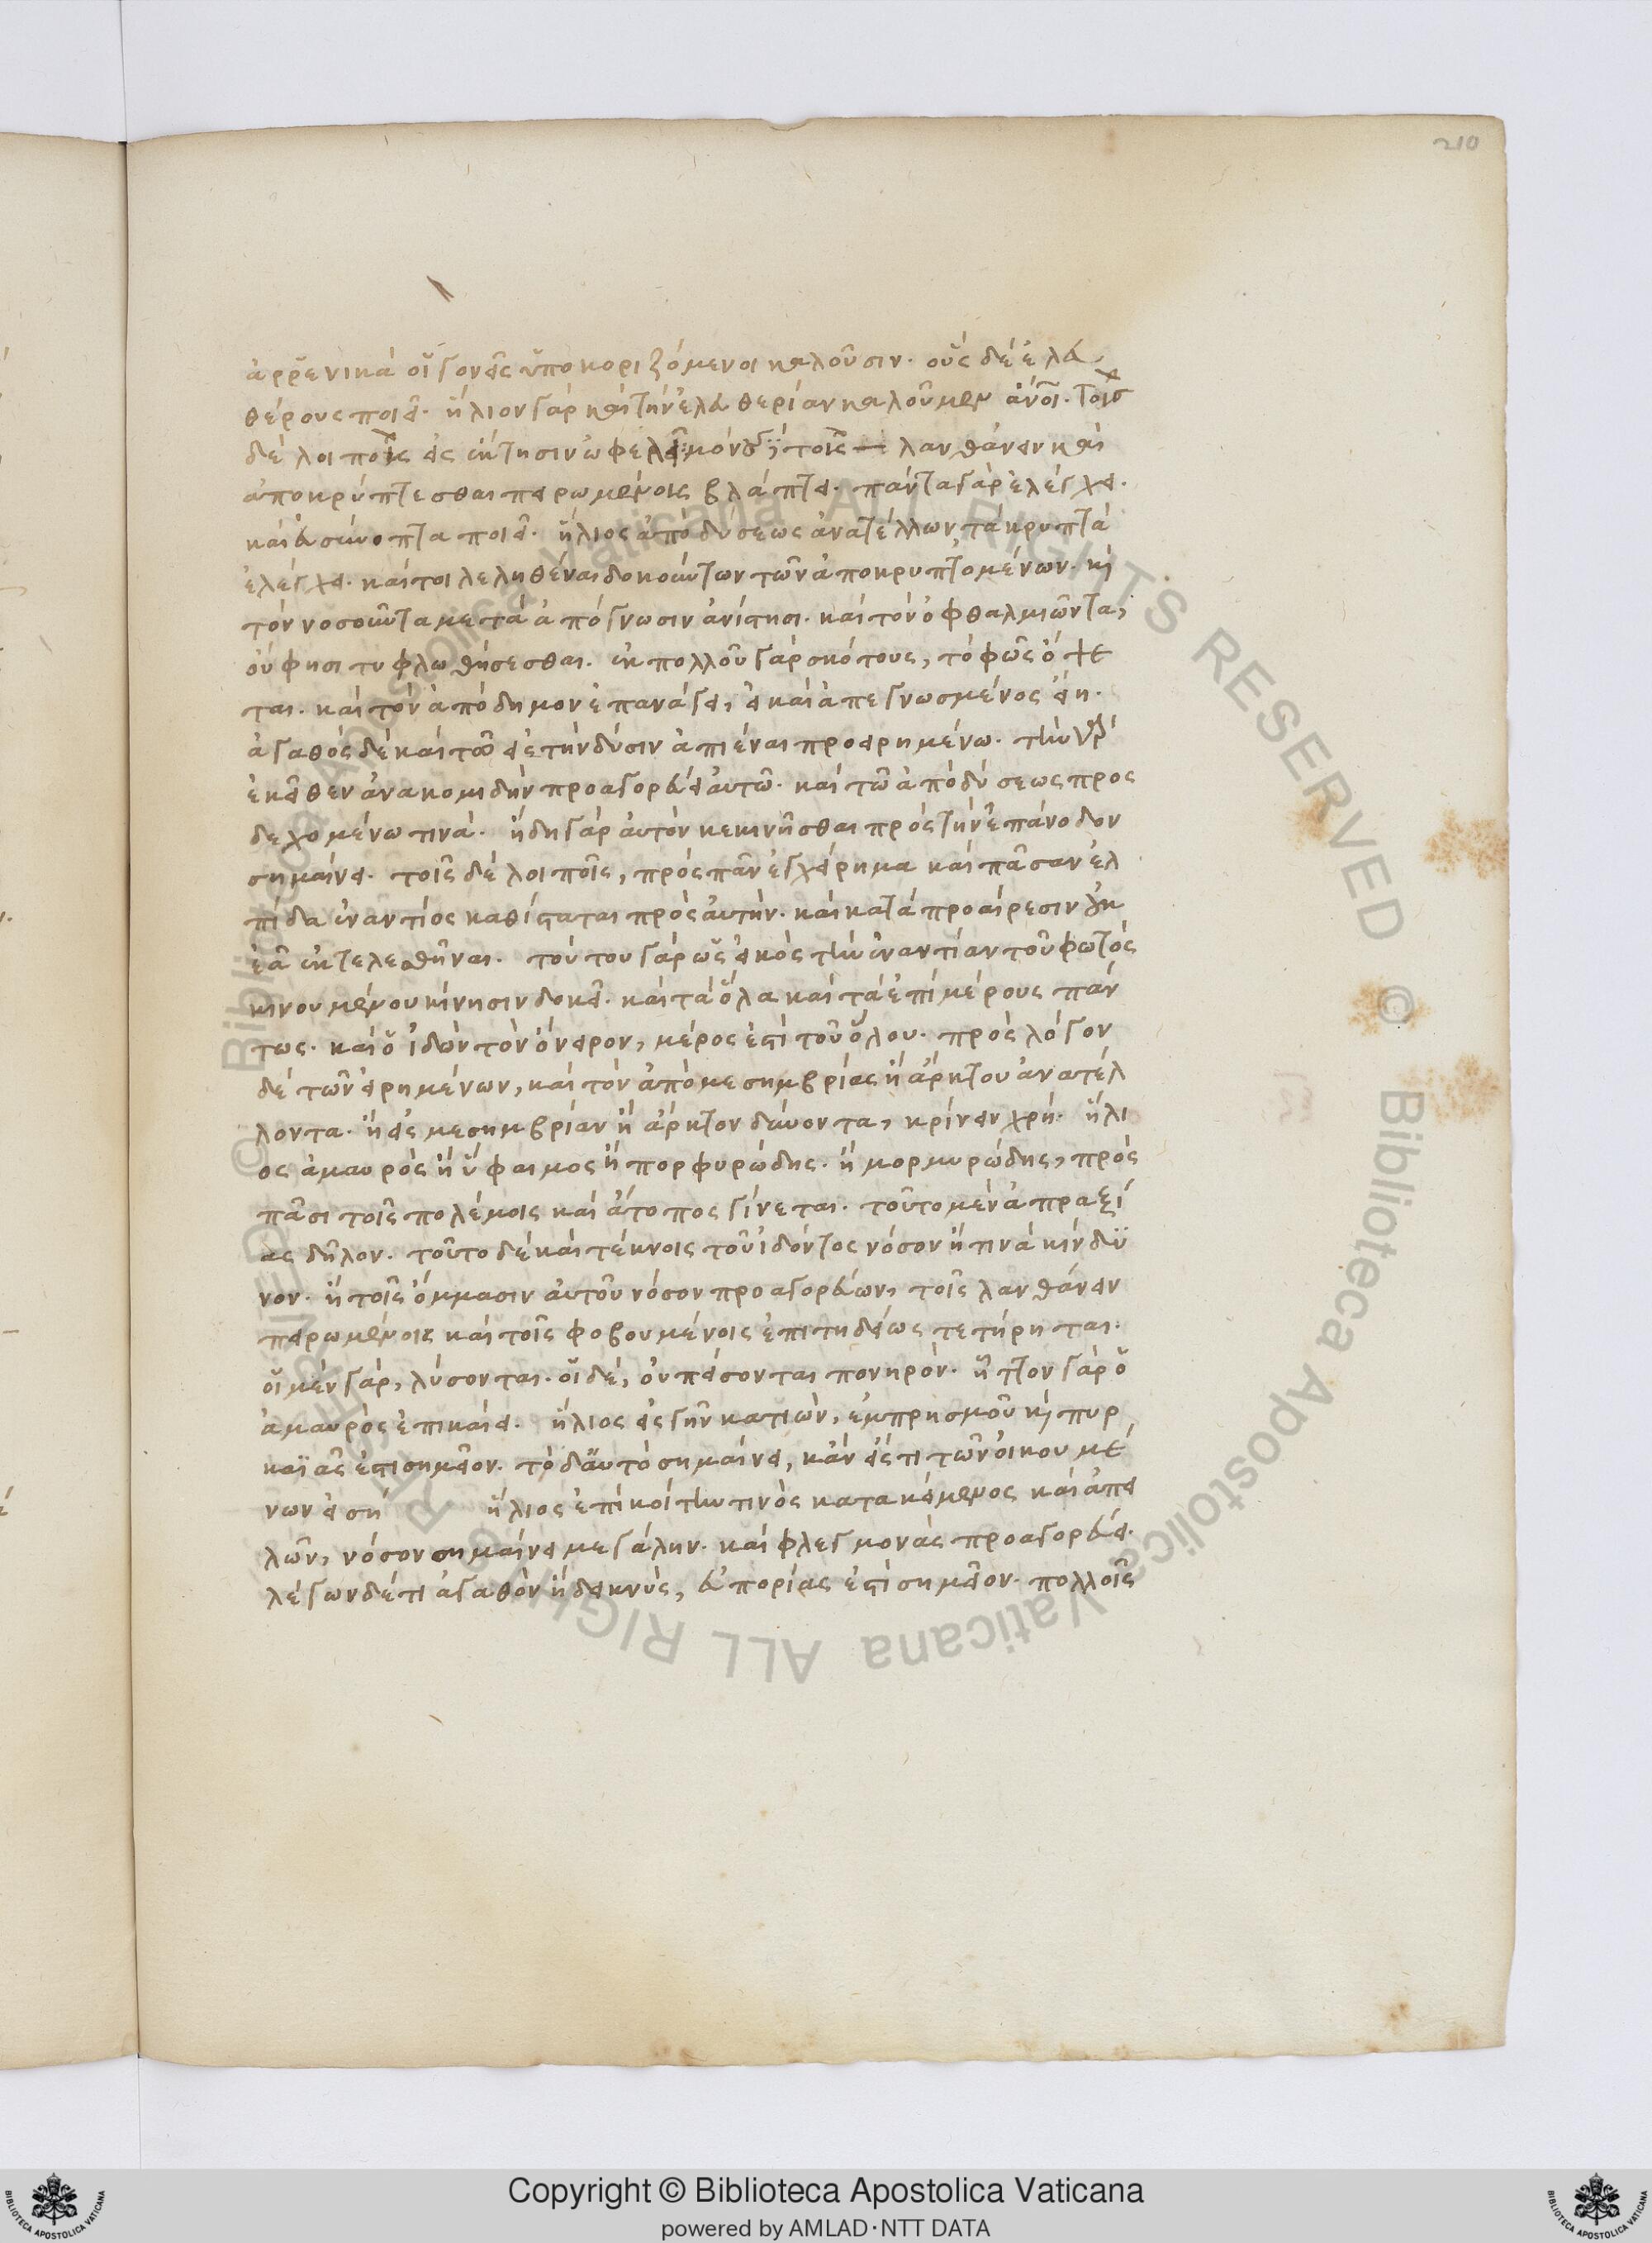 210
ἀρρενικὰ οἱ γονεῖς ὑποκοριζόμενοι καλοῦσιν. οὓς δὲ ἐλευ
θέρους ποιεῖ. ἥλιον γὰρ καὶ τὴν ἐλευθερίαν καλοῦμεν ἄνοι. τοῖς
δὲ λοιποῖς εἰς κτῆσιν ὠφελεῖ. μόνοις τοῖς λανθάνειν καὶ
ἀποκρύπτεσθαι πειρωμένοις βλάπτει. πάντα γὰρ ἐλέγχει.
καὶ εὐσύνοπτα ποιεῖ. ἥλιος ἀπὸ δύσεως ἀνατέλλων, τὰ κρυπτὰ
ἐλέγχει. καίτοι λεληθέναι δοκούντων τῶν ἀποκρυπτομένων. καὶ
τὸν νοσοῦντα μετὰ ἀπόγνωσιν ἀνίστησι. καὶ τὸν ὀφθαλμιῶντα,
οὔ φησι τυφλωθήσεσθαι. ἐκ πολλοῦ γὰρ σκότους, τὸ φῶς ὄψε
ται. καὶ τὸν ἀπόδημον ἐπανάγει, εἰ καὶ ἀπεγνωσμένος εἴη.
ἀγαθὸς δὲ καὶ τῶ εἰς τὴν δύσιν ἀπιέναι προειρημένω. τὴν γὰρ
ἐκεῖθεν ἀνακομιδὴν προαγορεύει αὐτῶ. καὶ τῶ ἀπὸ δύσεως προς
δεχομένω τινά. ἤδη γὰρ αὐτὸν κεκινῆσθαι πρὸς τὴν ἐπάνοδον
σημαίνει. τοῖς δὲ λοιποῖς, πρὸς πᾶν ἐγχείρημα καὶ πᾶσαν ἐλ
πίδα ἐναντίος καθίσταται πρὸς αὐτήν. καὶ κατὰ προαίρεσιν οὐκ
ἐᾶ ἐκτελεσθῆναι. τούτου γὰρ ὡς εἰκὸς τὴν ἐναντίαν τοῦ φωτὸς
κινουμένου κίνησιν δοκεῖ. καὶ τὰ ὅλα καὶ τὰ ἐπὶ μέρους πάν
τως. καὶ ὁ ἰδὼν τὸν ὄνειρον, μέρος ἐστὶ τοῦ ὅλου. πρὸς λόγον
δὲ τῶν εἰρημένων, καὶ τὸν ἀπὸ μεσημβρίας ἢ ἄρκτου ἀνατέλ
λοντα. ἢ εἰς μεσημβρίαν ἢ ἄρκτον δύνοντα, κρίνειν χρή. ἥλι
ος ἀμαυρὸς ἢ ὕφαιμος ἢ πορφυρώδης. ἢ μορμυρώδης, πρὸς
πᾶσι τοῖς πολέμοις καὶ ἄτοπος γίνεται. τοῦτο μὲν ἀπραξί
ας δῆλον. τοῦτο δὲ καὶ τέκνοις τοῦ ἰδόντος νόσον ἤ τινα κίνδυ
νον. ἢ τοῖς ὄμμασιν αὐτοῦ νόσον προαγορεύων, τοῖς λανθάνειν
πειρωμένοις καὶ τοῖς φοβουμένοις ἐπιτηδείως τετήρηται.
οἱ μὲν γὰρ, λύσονται. οἱ δὲ, οὐ πείσονται πονηρόν. ἧττον γὰρ ὁ
ἀμαυρὸς ἐπικαίει. ἥλιος εἰς γῆν κατιὼν, ἐμπρησμοῦ καὶ πυρ
καϊᾶς ἐστι σημεῖον. τὸ δ' αὐτὸ σημαίνει, κἂν εἴς τι τῶν οἰκουμέ
νων εἰσή ἥλιος ἐπὶ κοίτην τινὸς κατακείμενος καὶ ἀπει
λῶν, νόσον σημαίνει μεγάλην. καὶ φλεγμονὰς προαγορεύει.
λέγων δέ τι ἀγαθὸν ἢ δεικνὺς, εὐπορίας ἐστὶ σημεῖον. πολλοῖς
Copyright © Biblioteca Apostolica Vaticana
powered by AMLAD·NTT DATA